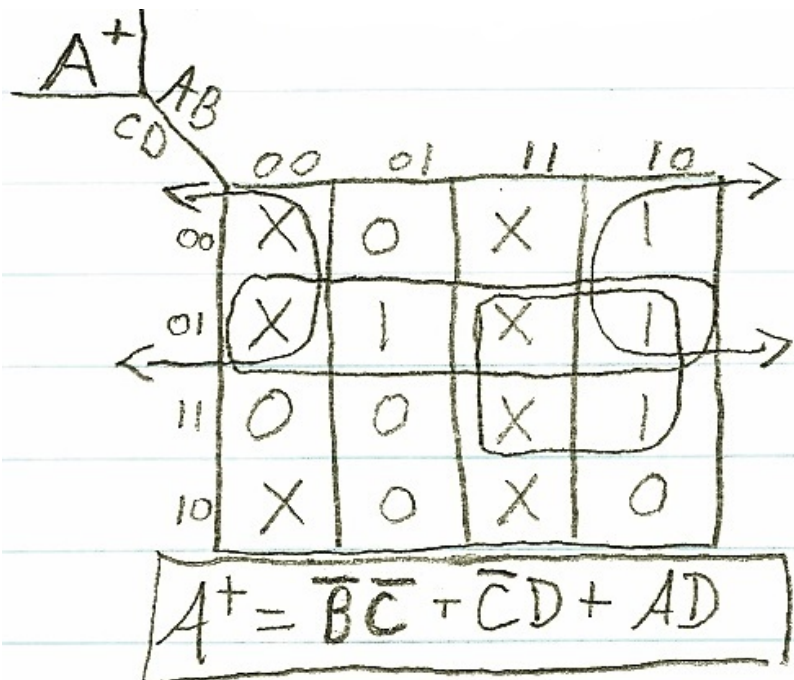 A⁺
AB
CD
00 01 11 10
00 X 0 X 1
01 X 1 X 1
11 0 0 X 1
10 X 0 X 0
A⁺ = B̅ C̅ + C̅D + AD